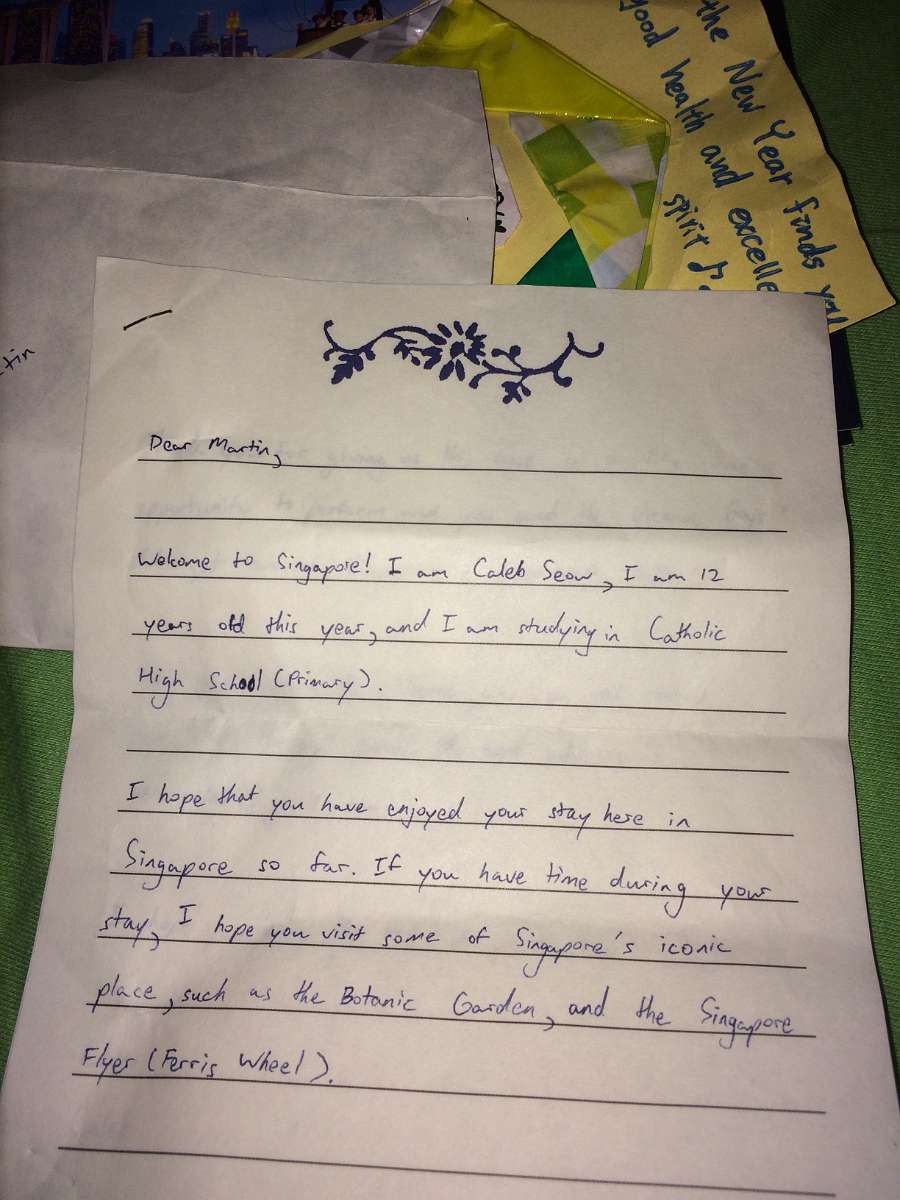 the New Year finds you
good health and excelle
spirit
tin
Dear Martin,
Welcome to Singapore! I am Caleb Seow, I am 12
years old this year, and I am studying in Catholic
High School (Primary).
I hope that you have enjoyed your stay here in
Singapore so far. If you have time during your
stay, I hope you visit some of Singapore's iconic
place, such as the Botanic Garden, and the Singapore
Flyer (Ferris Wheel).